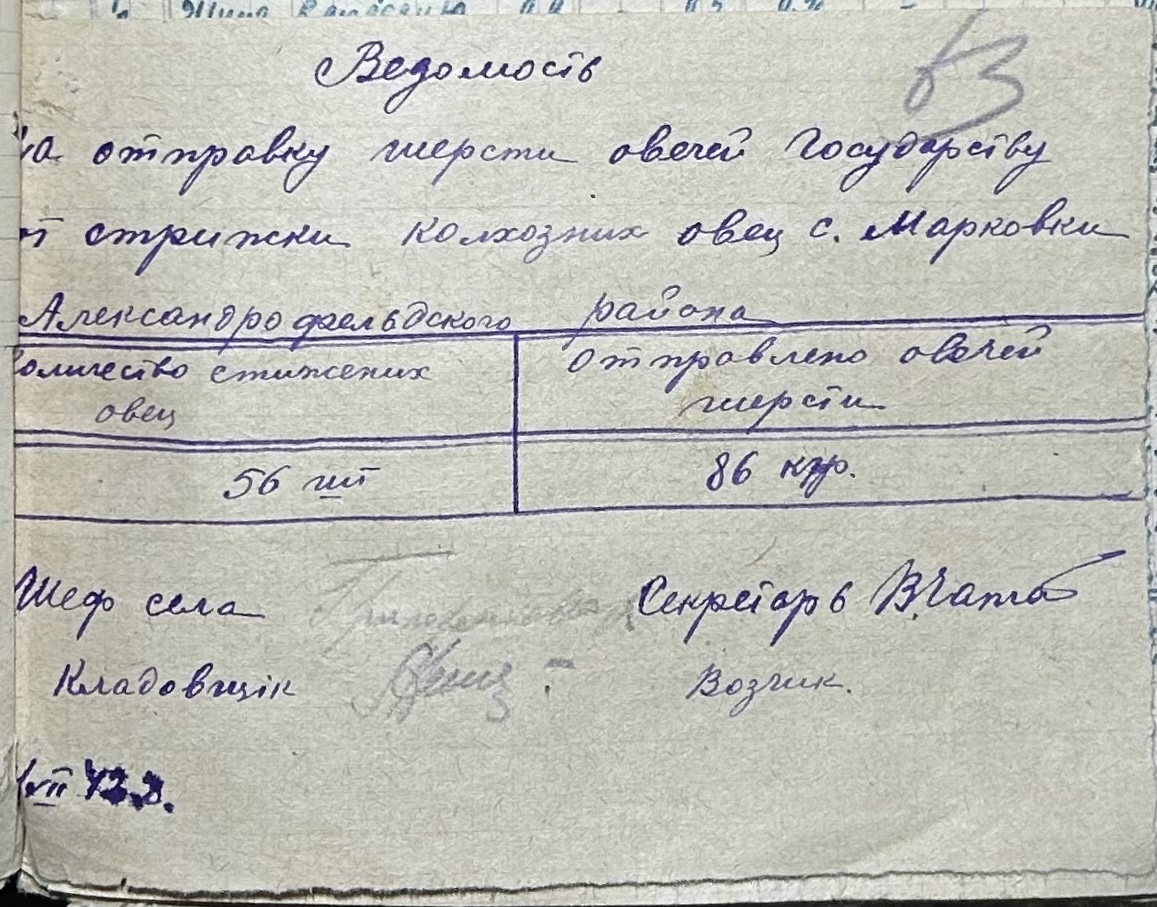 Ведомость
на отправку шерсти овечей Государству
от стрижки колхозних овец с. Марковки
Александрофельдского района
количество стижених отправлено овечей
овец шерсти
56 шт 86 кгр.
Шеф села Секретарь
Кладовщік Возчик.
VII 42 г.